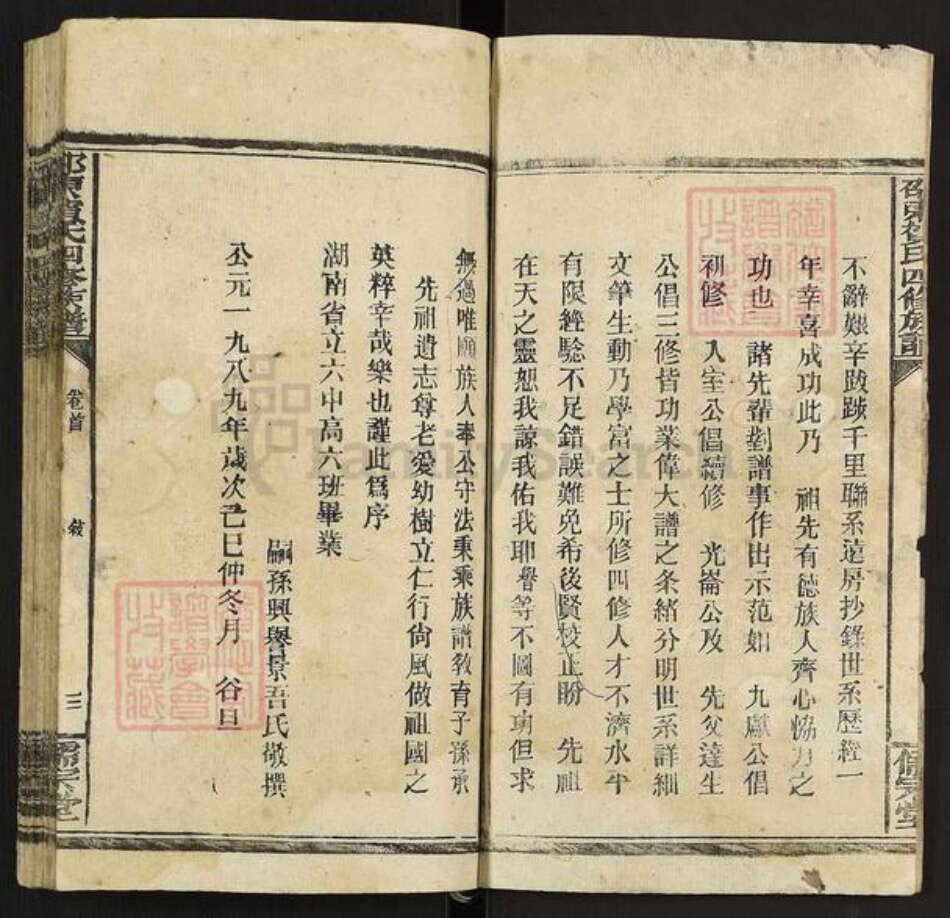 不辭艱辛跋踄千里聯系遠房抄錄世系歷經一
年幸喜成功此乃　祖先有德族人齊心恊力之
功也　諸先輩對譜事作出示范如　九獻公倡
初修　入室公倡續修　光崙公及　先父達生
公倡三修皆功業偉大譜之条緒分明世系詳細
文筆生動乃學富之士所修四修人才不濟水平
有限經驗不足錯誤難免希後賢校正盼　先祖
在天之靈恕我諒我佑我耶譽等不圖有功但求
無過唯願族人奉公守法秉乘族譜敎育子孫承
先祖遺志尊老愛幼樹立仁行尙風做祖國之
英粹幸哉樂也謹此爲序
湖南省立六中高六班畢業
嗣孫興譽景吾氏敬撰
公元一九八九年歲次己巳仲冬月　谷旦
卷首　敍　三
氏四修族譜
FamilySearch